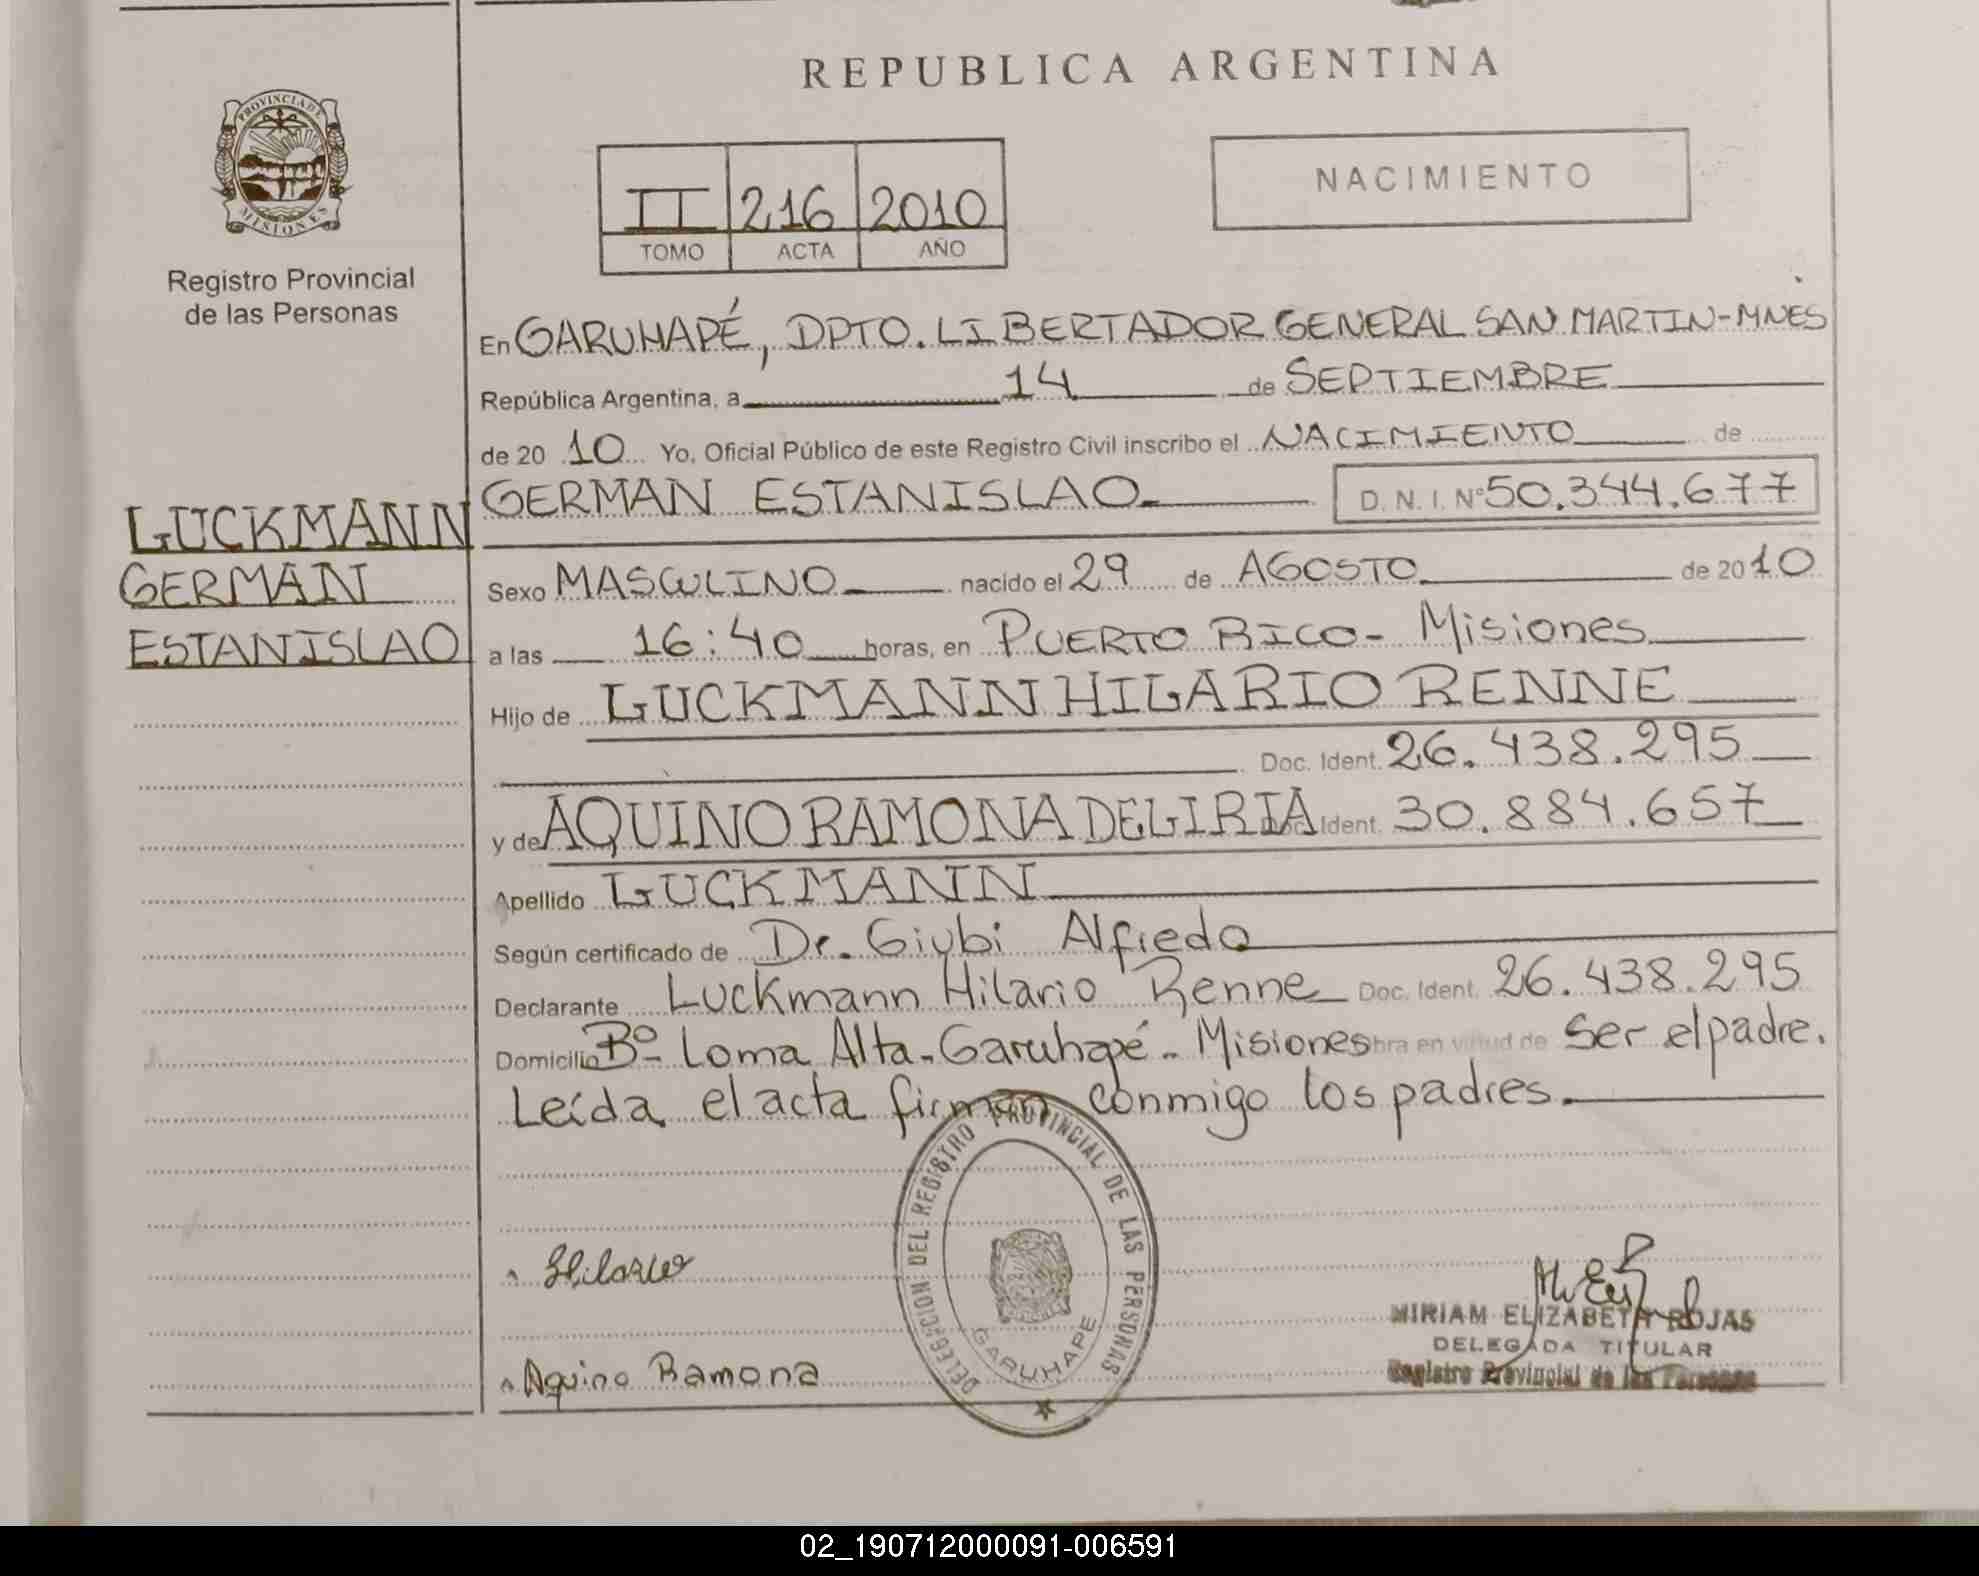 REPUBLICA ARGENTINA
PROVINCIA DE
MISIONES
Registro Provincial
de las Personas
II 216 2010
TOMO ACTA AÑO
NACIMIENTO
En GARUHAPÉ, DPTO. LIBERTADOR GENERAL SAN MARTIN-MNES
República Argentina, a 14 de SEPTIEMBRE
de 20 10 Yo, Oficial Público de este Registro Civil inscribo el NACIMIENTO de
GERMAN ESTANISLAO D. N. I. Nº 50.344.677
LUCKMANN
GERMAN
ESTANISLAO
Sexo MASCULINO nacido el 29 de AGOSTO de 20 10
a las 16:40 horas, en PUERTO RICO - Misiones
Hijo de LUCKMANN HILARIO RENNE
Doc. Ident. 26.438.295
y de AQUINO RAMONA DELIRIA Doc. Ident. 30.884.657
Apellido LUCKMANN
Según certificado de Dr. Giubi Alfredo
Declarante Luckmann Hilario Renne Doc. Ident. 26.438.295
Domicilio Bº- Loma Alta - Garuhapé - Misiones bra en virtud de Ser el padre.
Leída el acta firman conmigo los padres.
DELEGACION DEL REGISTRO PROVINCIAL DE LAS PERSONAS
GARUHAPE
Hilario
Aquino Ramona
MIRIAM ELIZABETH ROJAS
DELEGADA TITULAR
Registro Provincial de las Personas
02_190712000091-006591